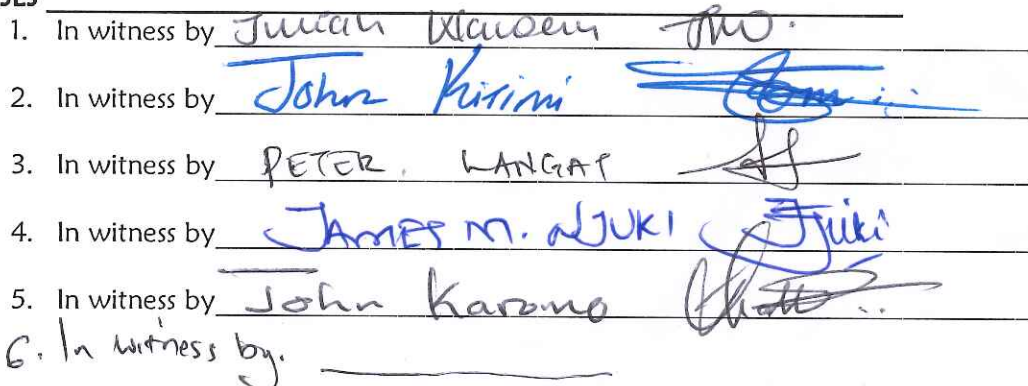 1. In witness by
2. In witness by John Kirimi
3. In witness by PETER. LANGAT
4. In witness by JAMES M. NJUKI Njuki
5. In witness by John
6. In witness by.